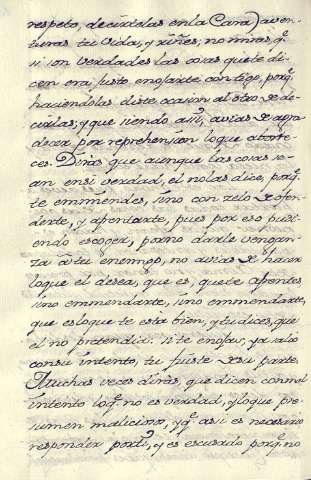 respeto, decirdelas en la Cara) aven-
turas tu vida, y riñes; no miras, q.e
si son verdades las cosas que te di-
cen era justo enojarte contigo, porq.e
haciendolas diste ocasion al otro de de-
cirlas; y que siendo assi, avias de agra-
decer por reprehension lo que aborre-
ces. Dirás que aunque las cosas se-
an en si verdad, el no las dice, porq.e
te emmiendes, sino con zelo de ofen-
derte, y afrentarte, pues por eso pudi-
endo escoger, por no darle vengan-
za a tu enemigo, no avias de hacer
lo que el desea, que es, que te afrentes
sino emmendarte, sino emmendarte,
que es lo que te esta bien, y tu dices, que
el no pretendia: si te enojas, ya salio
con su intento, tu fuiste de su parte.
Muchas veces dirás, que dicen con mal
intento lo q.e no es verdad, y lo que pre-
sumen malicioso, y q.e assi es necesario
responder por ti, y es escusado porq.e no